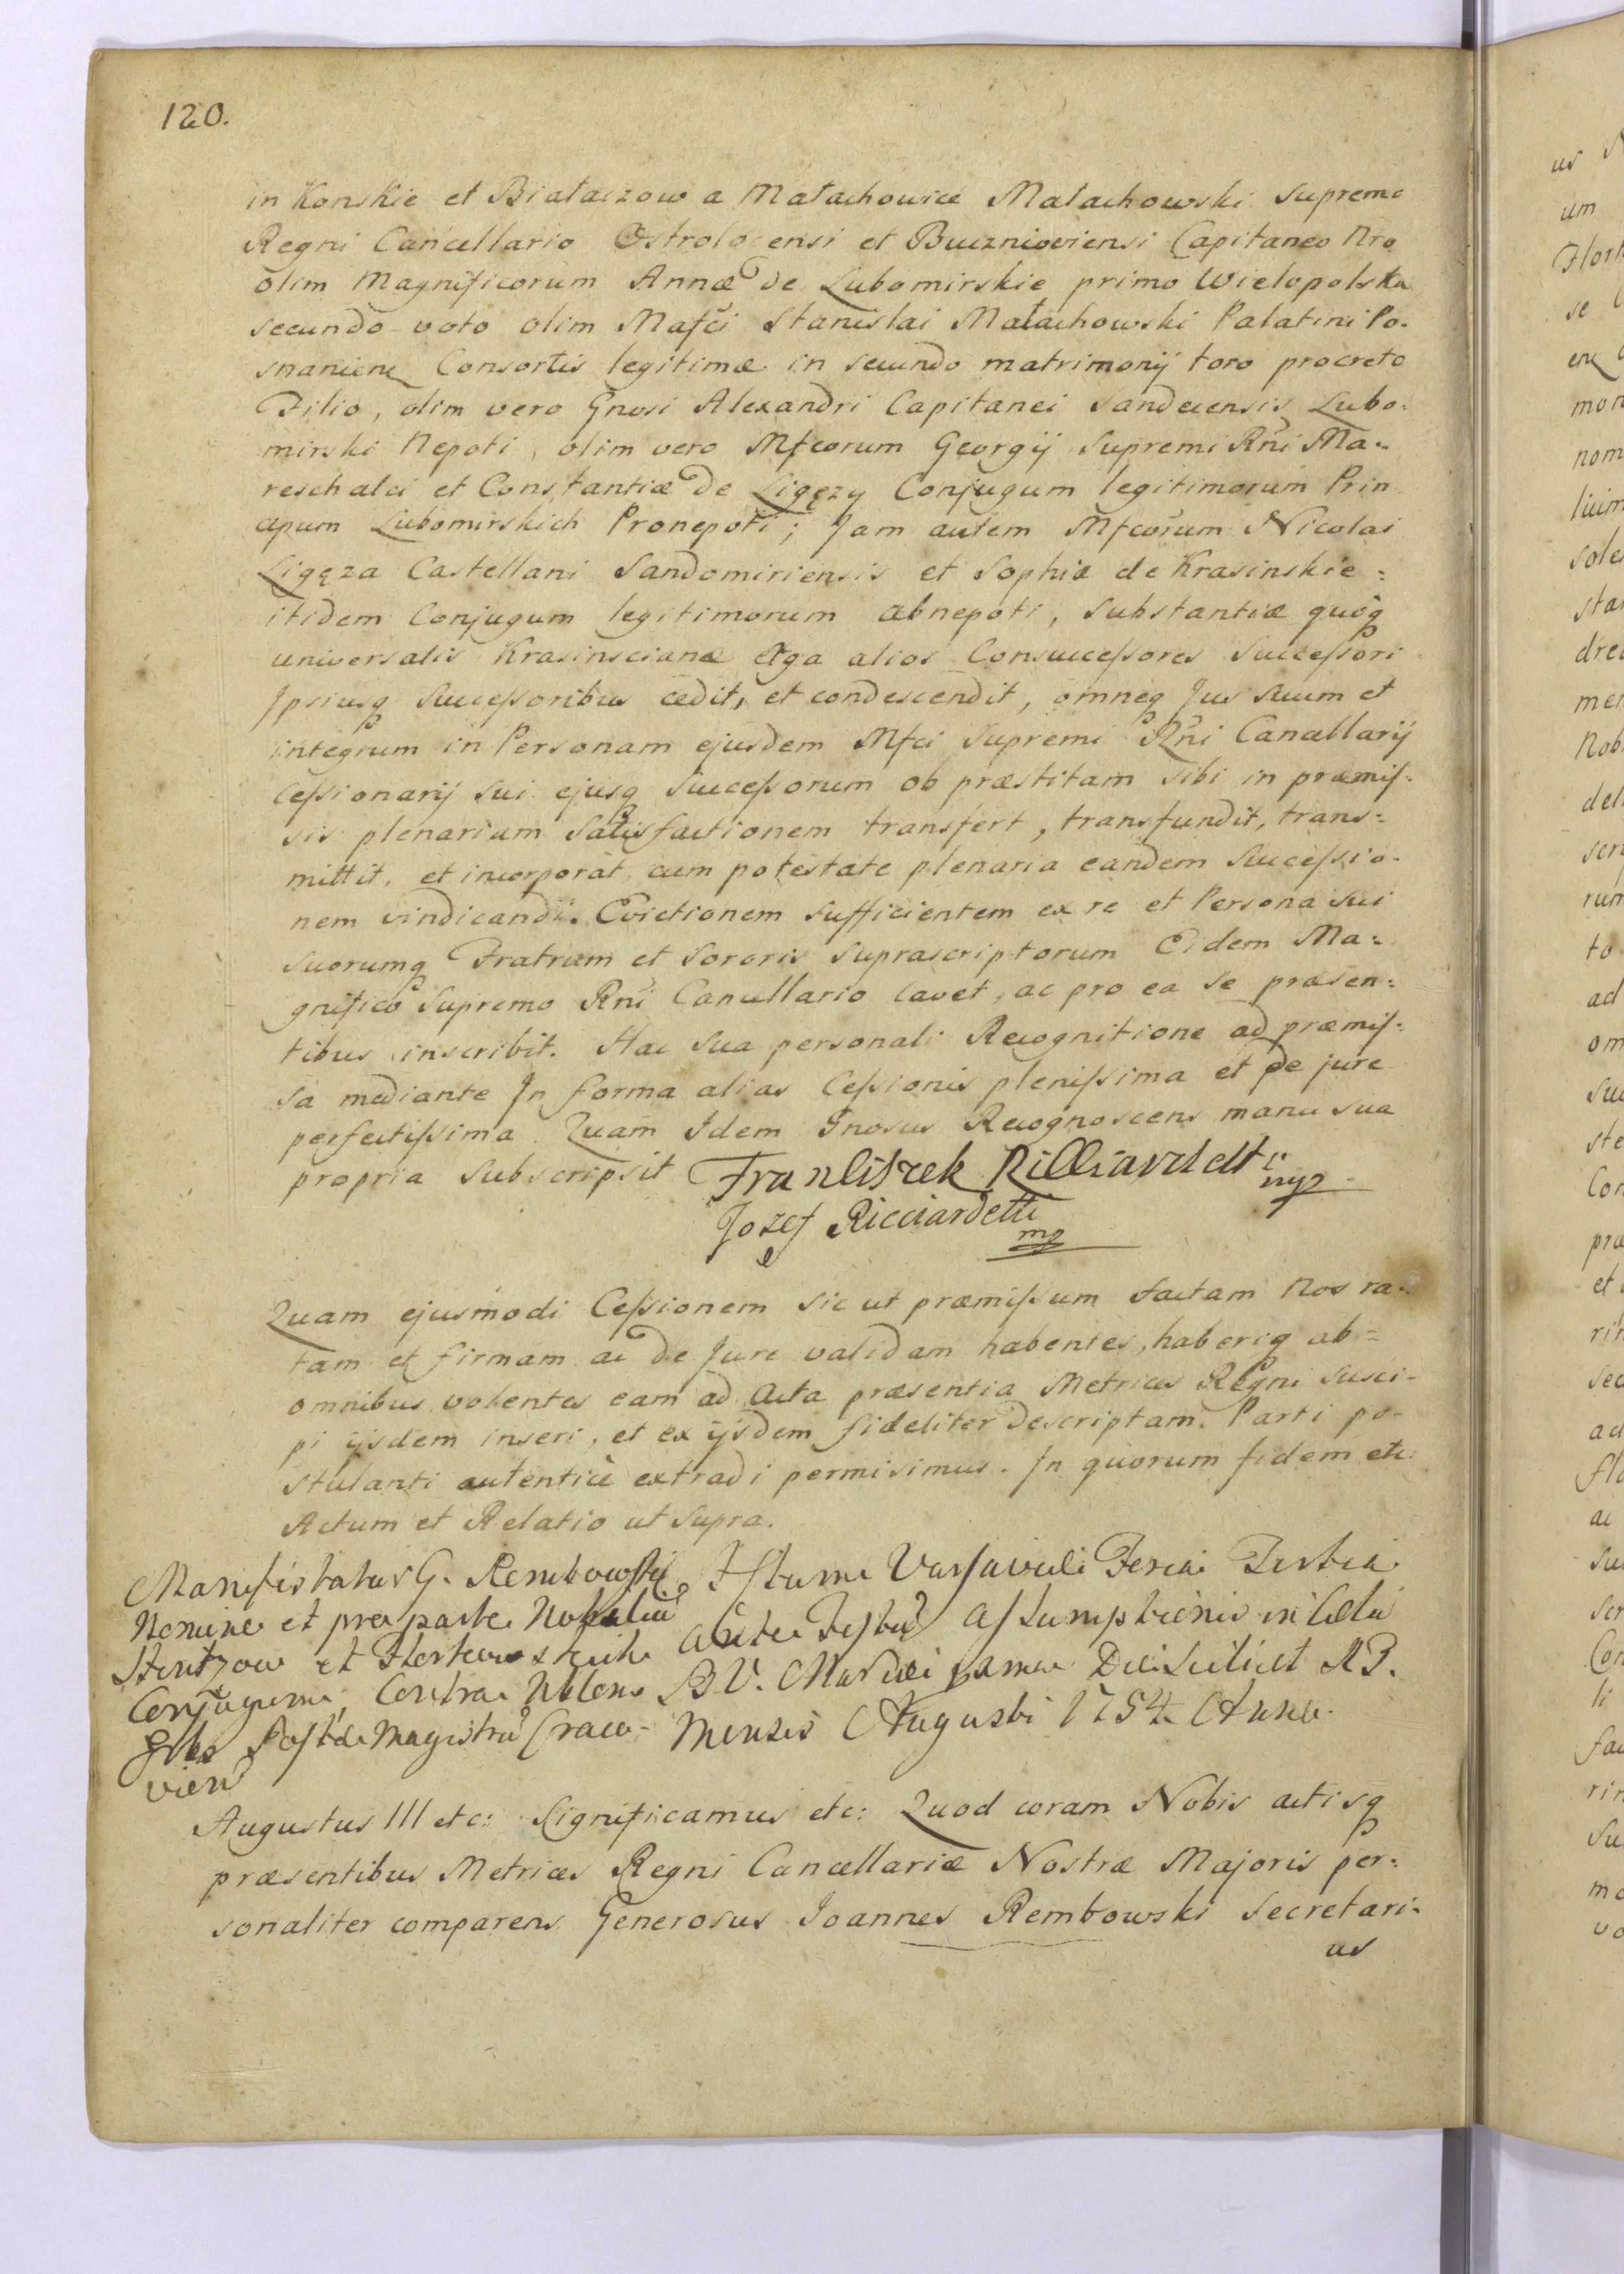 120.
in Konskie et Białaczow a Małachowice Małachowski Supremo
Regni Cancellario Ostrolocensi et Buczniowiensi Capitaneo Nro
olim Magnificorum Annæ de Lubomirskie primo Wielopolska
secundo voto olim Mafci Stanislai Małachowski Palatini Po-
snanien Consortis legitimæ in secundo matrimonij toro procreto
Filio, olim vero Gnosi Alexandri Capitanei Sandecensis Lubo-
mirski Nepoti, olim vero Mfcorum Georgij Supremi Rni Ma=
reschalci et Constantiæ de Ligęzy Conjugum legitimorum Prin
cipum Lubomirskich Pronepoti; Jam autem Mfcorum Nicolai
Ligęza Castellani Sandomiriensis et Sophiæ de Krasinskie=
itidem Conjugum legitimorum abnepoti, Substantiæ quoq
universalis Krasinscianæ erga alios Consuccessores Successori
Ipsiusq Successoribus cedit, et condescendit, omneq Jus suum et
integrum in Personam ejusdem Mfci Supremi Rni Cancellarij
Cessionarij sui ejusq Successorum ob præstitam sibi in præmis=
sis plenariam satisfactionem transfert, transfundit, trans=
mittit, et incorporat, cum potestate plenaria eandem Successio-
nem vindicandi. Evictionem sufficientem ex re et Persona sui
suorumq Fratrum et Sororis suprascriptorum Eidem Ma=
gnifico Supremo Rni Cancellario cavet, ac pro ea se præsen=
tibus inscribit. Hac sua personali Recognitione ad præmis=
sa mediante In forma alias Cessionis plenissima et de jure
perfectissima. Quam Idem Gnosus Recognoscens manu sua
propria subscripsit Franciszek Ricciardetti mp
Jozef Ricciardetti mp
Quam ejusmodi Cessionem sic ut præmissum factam Nos ra=
tam et firmam ac de Jure validam habentes, haberiq ab=
omnibus volentes eam ad Acta præsentia Metrices Regni susci-
pi ijsdem inseri, et ex ijsdem fideliter descriptam. Parti po-
stulanti autentice extradi permisimus. In quorum fidem etc:
Actum et Relatio ut supra.
Manifestatur G. Rembowski
Nomine et pro parte Nobilium
Conjugum, Contra
Postæ Magistrum Craco-
vien
Actum Varsaviæ Feria Tertia
ante Festum Assumptionis in Cœlu
B V. Mariæ Die
Mensis Augusti 1754. Anno.
Augustus III etc: Significamus etc: Quod coram Nobis actisq
præsentibus Metrices Regni Cancellariæ Nostræ Majoris per=
sonaliter comparens Generosus Joannes Rembowski Secretari=
us